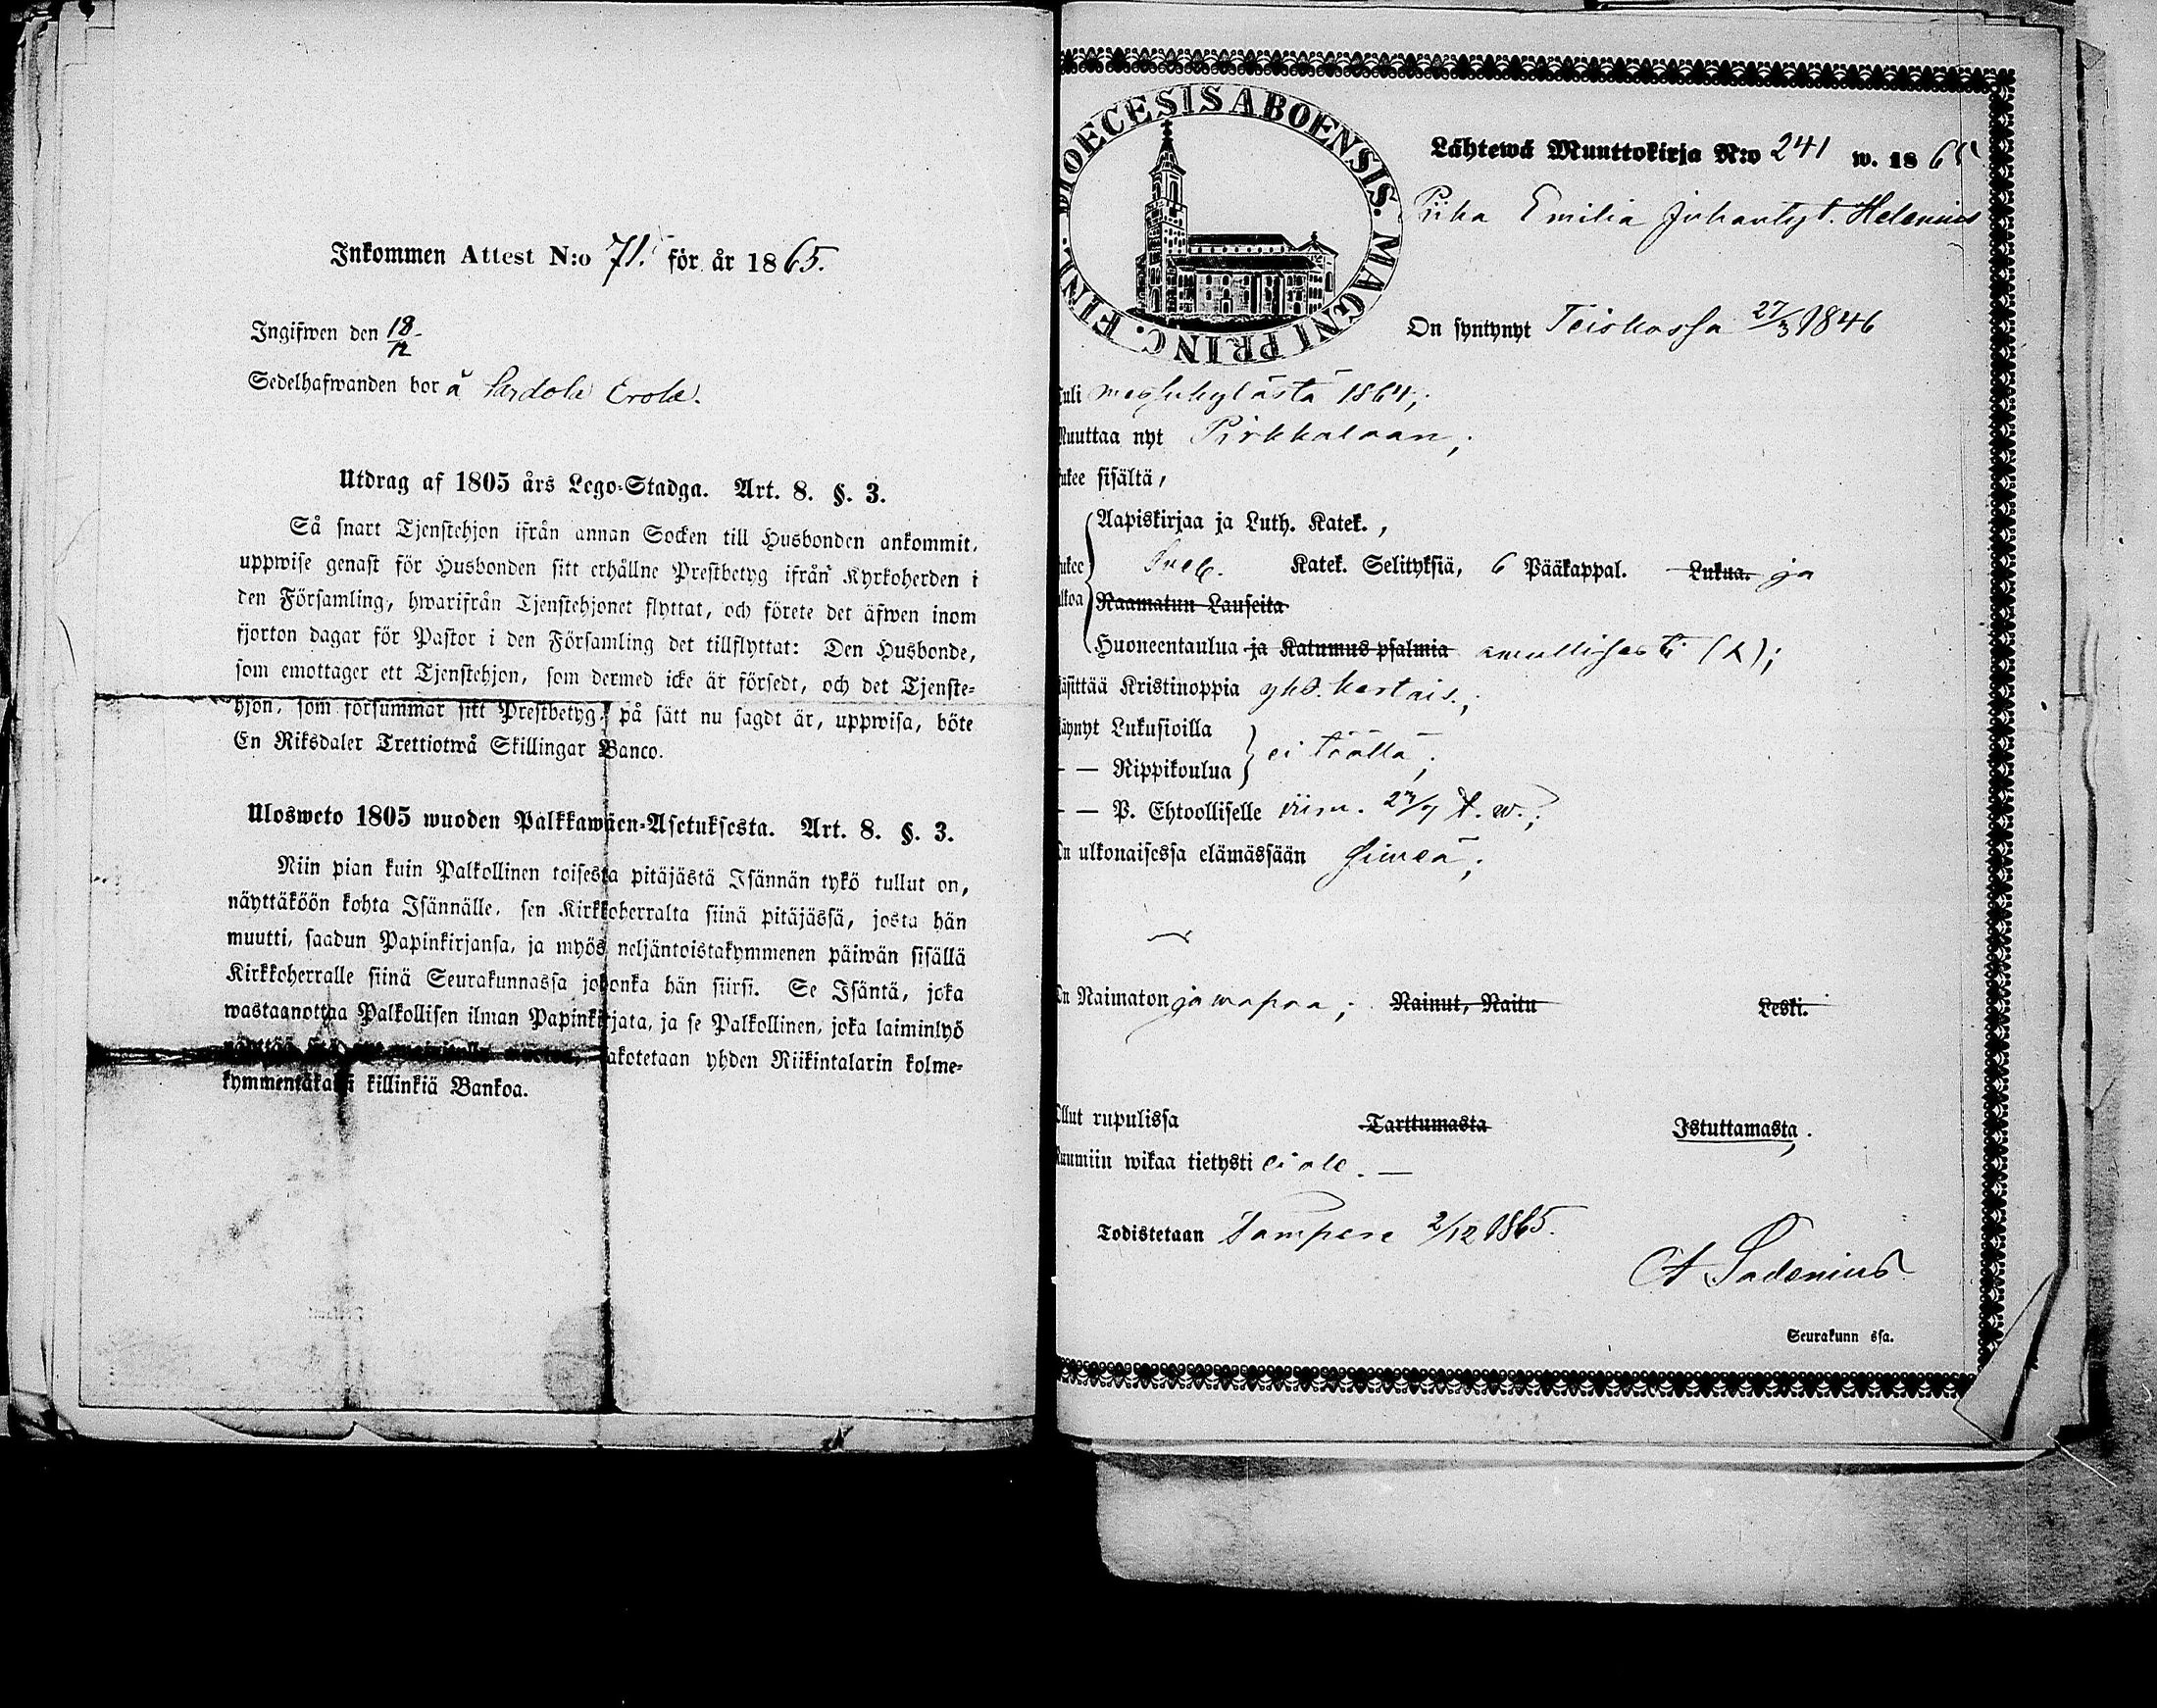 Inkommen Attest N:o 71. för år 1865.
Ingifwen den 18/12
Sedelhafwanden bor å Erola.
Utdrag af 1805 års Lego-Stadga. Art. 8. §. 3.
Så snart Tjenstehjon ifrån annan Socken till Husbonden ankommit,
uppwise genast för Husbonden sitt erhållne Prestbetyg ifrån Kyrkoherden i
den Församling, hwarifrån Tjenstehjonet flyttat, och förete det äfwen inom
fjorton dagar för Pastor i den Församling det tillflyttat: Den Husbonde,
som emottager ett Tjenstehjon, som dermed icke är försedt, och det Tjenste-
hjon, som försummar sitt Prestbetyg, på sätt nu sagdt är, uppwisa, böte
En Riksdaler Trettiotwå Skillingar Banco.
Ulosweto 1805 wuoden Palkkawäen-Asetuksesta. Art. 8. §. 3.
Niin pian kuin Palkollinen toisesta pitäjästä Isännän tykö tullut on,
näyttäköön kohta Isännälle, sen Kirkkoherralta siinä pitäjässä, josta hän
muutti, saadun Papinkirjansa, ja myös neljäntoistakymmenen päiwän sisällä
Kirkkoherralle siinä Seurakunnassa johonka hän siirsi. Se Isäntä, joka
wastaanottaa Palkollisen ilman Papinkirjata, ja se Palkollinen, joka laiminlyö
näyttää sakotetaan yhden Riikintalarin kolme-
kymmentäkaksi killinkiä Bankoa.
DIOECESIS ABOENSIS. MAGNI PRINC. FINL.
Lähtewä Muuttokirja N:o 241 w. 1865
Piika Emilia Juhantyt. Helenius
On syntynyt Teiskossa 27/3 1846
Tuli Messukylästä 1864;
Muuttaa nyt Pirkkalaan;
Lukee sisältä,
Aapiskirjaa ja Luth. Katek.,
Lukee Sveb. Katek. Selityksiä, 6 Pääkappal. Lukua. ja
ulkoa Raamatun Lauseita
Huoneentaulua ja Katumus psalmia
Käsittää Kristinoppia yks. kertais.;
Käynyt Lukusioilla
— — Rippikoulua ei täällä;
— — P. Ehtoolliselle viim. t. w.;
On ulkonaisessa elämässään siweä;
On Naimaton ja wapaa; Nainut, Naitu Leski.
Ollut rupulissa Tarttumasta Istuttamasta.
Ruumiin wikaa tietysti ei ole. —
Todistetaan Tampere 2/12 1865.
A Sadenius
Seurakunn ssa.